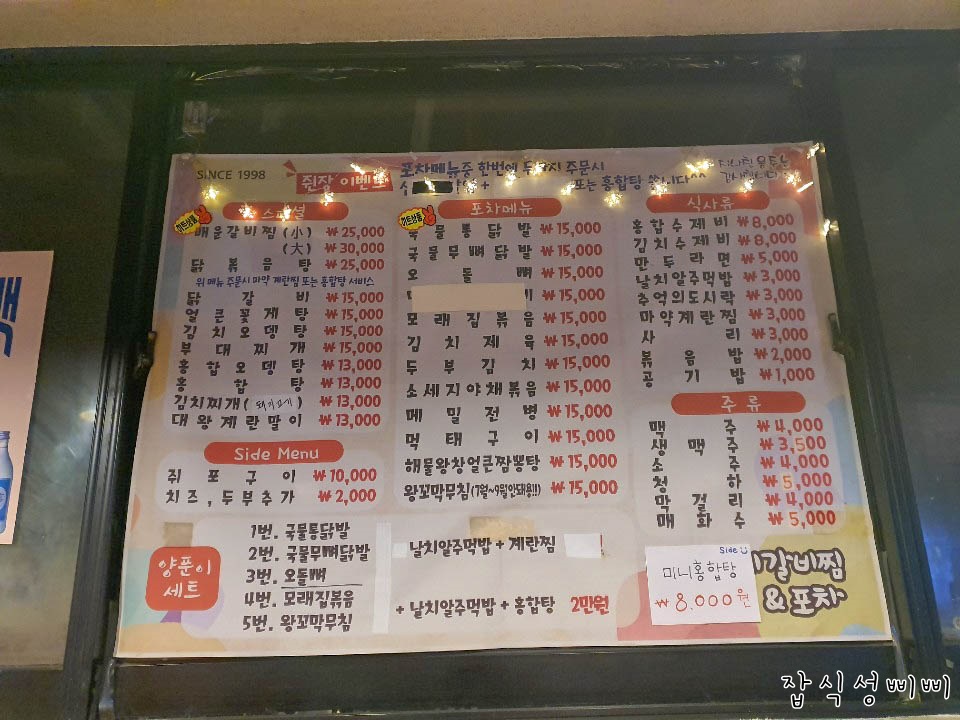 SINCE 1998
쥔장 이벤트
포차메뉴중 한번에 두가지 주문시
또는 홍합탕 쏩니다^^
히트상품
스페셜
매운갈비찜(小) ₩25,000
(大) ₩30,000
닭볶음탕 ₩25,000
위 메뉴 주문시 마약 계란찜 또는 홍합탕 서비스
닭갈비 ₩15,000
얼큰꽃게탕 ₩15,000
김치오뎅탕 ₩15,000
부대찌개 ₩15,000
홍합오뎅탕 ₩13,000
홍합탕 ₩13,000
김치찌개(돼지고기) ₩13,000
대왕계란말이 ₩13,000
Side Menu
쥐포구이 ₩10,000
치즈,두부추가 ₩2,000
히트상품
포차메뉴
국물통닭발 ₩15,000
국물무뼈닭발 ₩15,000
오돌뼈 ₩15,000
₩15,000
모래집볶음 ₩15,000
김치제육 ₩15,000
두부김치 ₩15,000
소세지야채볶음 ₩15,000
메밀전병 ₩15,000
먹태구이 ₩15,000
해물왕창얼큰짬뽕탕 ₩15,000
왕꼬막무침(7월~9월안돼용!!) ₩15,000
식사류
홍합수제비 ₩8,000
김치수제비 ₩8,000
만두라면 ₩5,000
날치알주먹밥 ₩3,000
추억의도시락 ₩3,000
마약계란찜 ₩3,000
사리 ₩3,000
볶음밥 ₩2,000
공기밥 ₩1,000
주류
맥주 ₩4,000
생맥주 ₩3,500
소주 ₩4,000
청하 ₩5,000
막걸리 ₩4,000
매화수 ₩5,000
양푼이
세트
1번. 국물통닭발
2번. 국물무뼈닭발
3번. 오돌뼈
4번. 모래집볶음
5번. 왕꼬막무침
날치알주먹밥 + 계란찜
+ 날치알주먹밥 + 홍합탕 2만원
Side
미니홍합탕
₩8.000원
갈비찜
&포차
잡식성삐삐